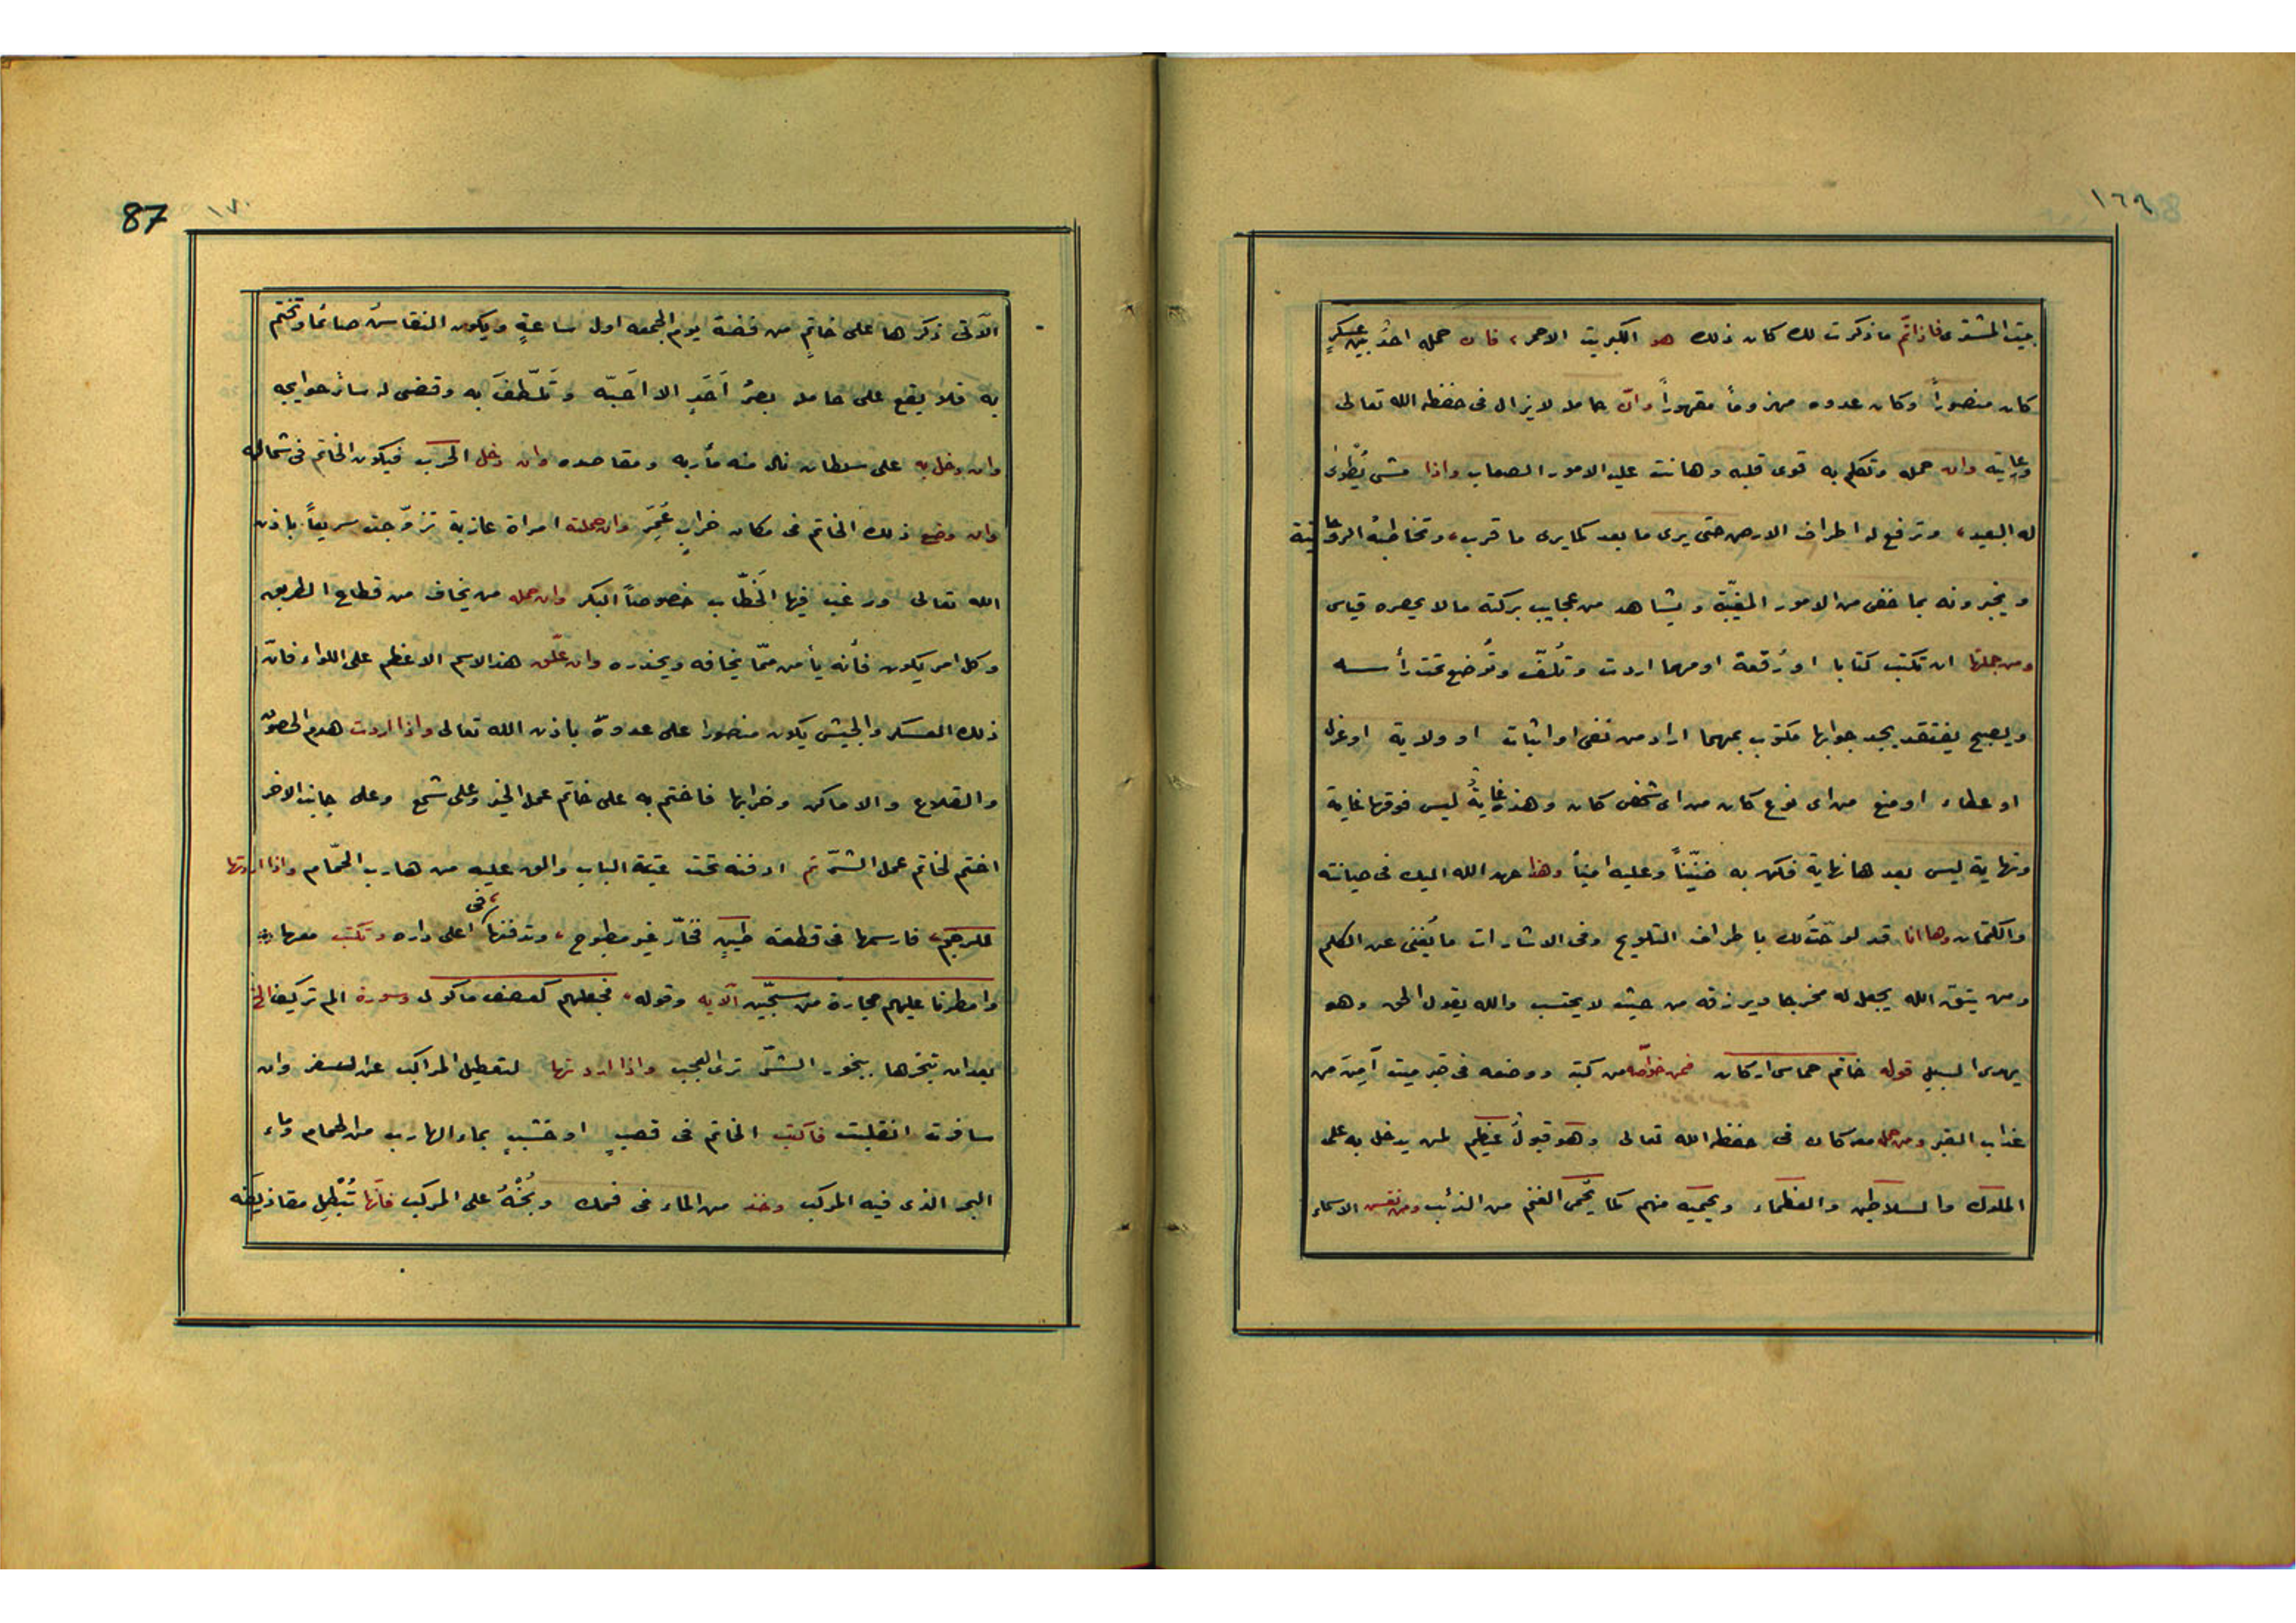 ١٦٩
بيت المشترى فاذا تم ماذكرت لك كان ذلك هو الكبريت الاحمر، فان حمله احدٌ بين عسكرٍ
كان منصوراً وكان عدوه مهزوماً مقهوراً وان حامله لايزال فى حفظ الله تعالى
ورعايته وان حمله وتكلم به قوى قلبه وهانت عليه الامور الصعاب واذا مشى يُطوى
له البعيد، وترفع له اطراف الارض حتى يرى ما بعد كما يرى ما قرب، وتخاطبه الروحانية
ويخبرونه بما خفى من الامور المغيّبة ويشاهد من عجايب بركته مالا يحصره قياس
ومن جملتها ان تكتب كتابا او رُقعة او مهما اردت وتُلفّ وتُوضع تحت رأسه
ويصبح يفتقد يجد جوابها مكتوب بمهما اراد من نفى او اثبات او ولاية او عزل
او عطاء او منع من اى نوع كان من اى شخص كان وهذه غايةٌ ليس فوقها غاية
ونهاية ليس بعدها نهاية فكن به ضنّيناً وعليه اميناً وهذا عهد الله اليك فى صيانته
والكتمان وها انا قد لوّحتُ لك باطراف التلويح وفى الاشارات ما يُغنى عن الكلم
ومن يتق الله يجعل له مخرجا ويرزقه من حيث لايحتسب والله يقول الحق وهو
يهدى السبيل قوله خاتم خماسى اركان فمن خواصّه من كتبه ووضعه فى قبر ميت آمِنَ من
عذاب القبر ومن حمل معه كان فى حفظ الله تعالى وهو قبولٌ عظيم لمن يدخل به على
الملوك والسلاطين والعظماء ويحميه منهم كما يُحمى الغنم من الذئب ومن نقش الاسماء
87
١٧٠
الآتى ذكرها على خاتمٍ من فضة يوم الجمعه اول ساعةٍ ويكون النقاش صائماً وتختم
به فلا يقع على حامله بصرُ اَحَدٍ الا اَحبّه وتَلَطّفَ به وقضى له سائر حوايجه
وان دخل به على سلطان نال منه مأربه ومقاصده وان دخل الحرب فيكون الخاتم فى شماله
وان وضع ذلك الخاتم فى مكان خرابٍ عُمِّرَ وان حملته امراة عازبة تزوّجت سريعاً باذن
الله تعالى ورغب فيها الخُطّاب خصوصاً البكر وان حمله من يخاف من قطاع الطريق
وكل امر يكون فأنه يأمن ممّا يخافه ويحذره وان علّق هذا الاسم الاعظم على اللواء فانّ
ذلك العسكر والجيش يكون منصورا على عدوهّ باذن الله تعالى واذا اردت هدم الحصون
والقلاع والاماكن وخرابها فاختم به على خاتم عمل الخير وعلى شمع وعلى جانب الاخر
اختم لخاتم عمل الشرّ ثم ادفنه تحت عتبة الباب والق عليه من هارب الحمّام واذا اردتها
للرجم، فارسمها فى قطعة طينٍ فخّار غير مطبوخ، وتدفنها فى اعلى داره وتكتب معها
وامطرنا عليهم حجارة من سجّين الآيه وقوله، فجعلهم كعصف ماكول وسورة الم تر كيف الخ
بعد ان تبخرها ببخور الشرّ ترى العجب واذا اردتها لتعطيل المراكب عن السفر وان
سافرت انقلبت فاكتب الخاتم فى قصبٍ او خشبٍ بماء الهارب من الحمام وماء
البحر الذى فيه المركب وخذ من الماء فى فمك وبُخّهُ على المركب فأنها تُبْطِل مقاذيفه